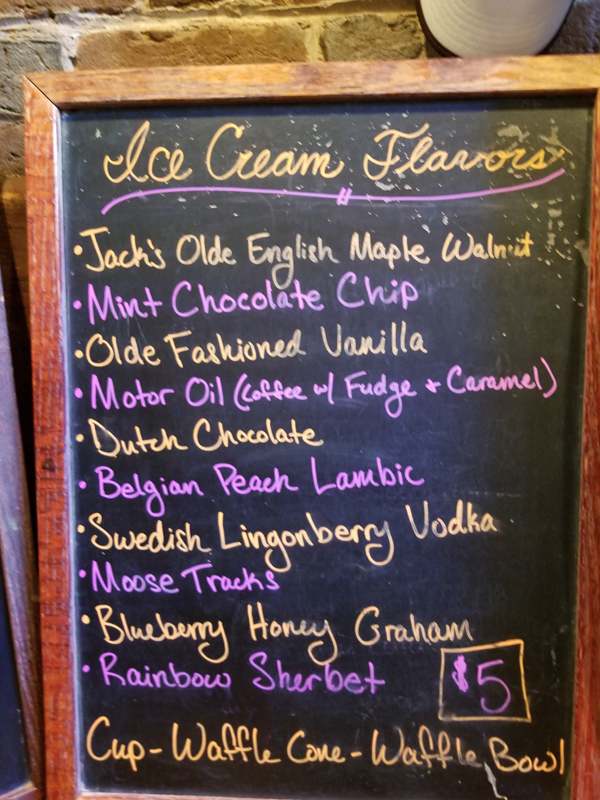 Ice Cream Flavors
• Jack's Olde English Maple Walnut
• Mint Chocolate Chip
• Olde Fashioned Vanilla
• Motor Oil (Coffee w/ Fudge + Caramel)
• Dutch Chocolate
• Belgian Peach Lambic
• Swedish Lingonberry Vodka
• Moose Tracks
• Blueberry Honey Graham
• Rainbow Sherbet
$5
Cup - Waffle Cone - Waffle Bowl